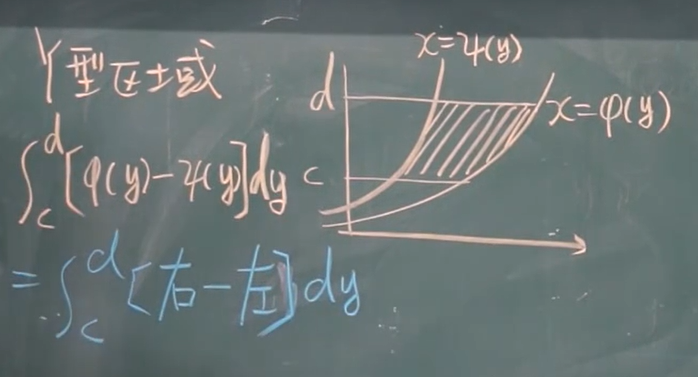 Y型区域
∫_c^d [φ(y)-ψ(y)]dy
=∫_c^d [右-左]dy
x=ψ(y)
d
x=φ(y)
c